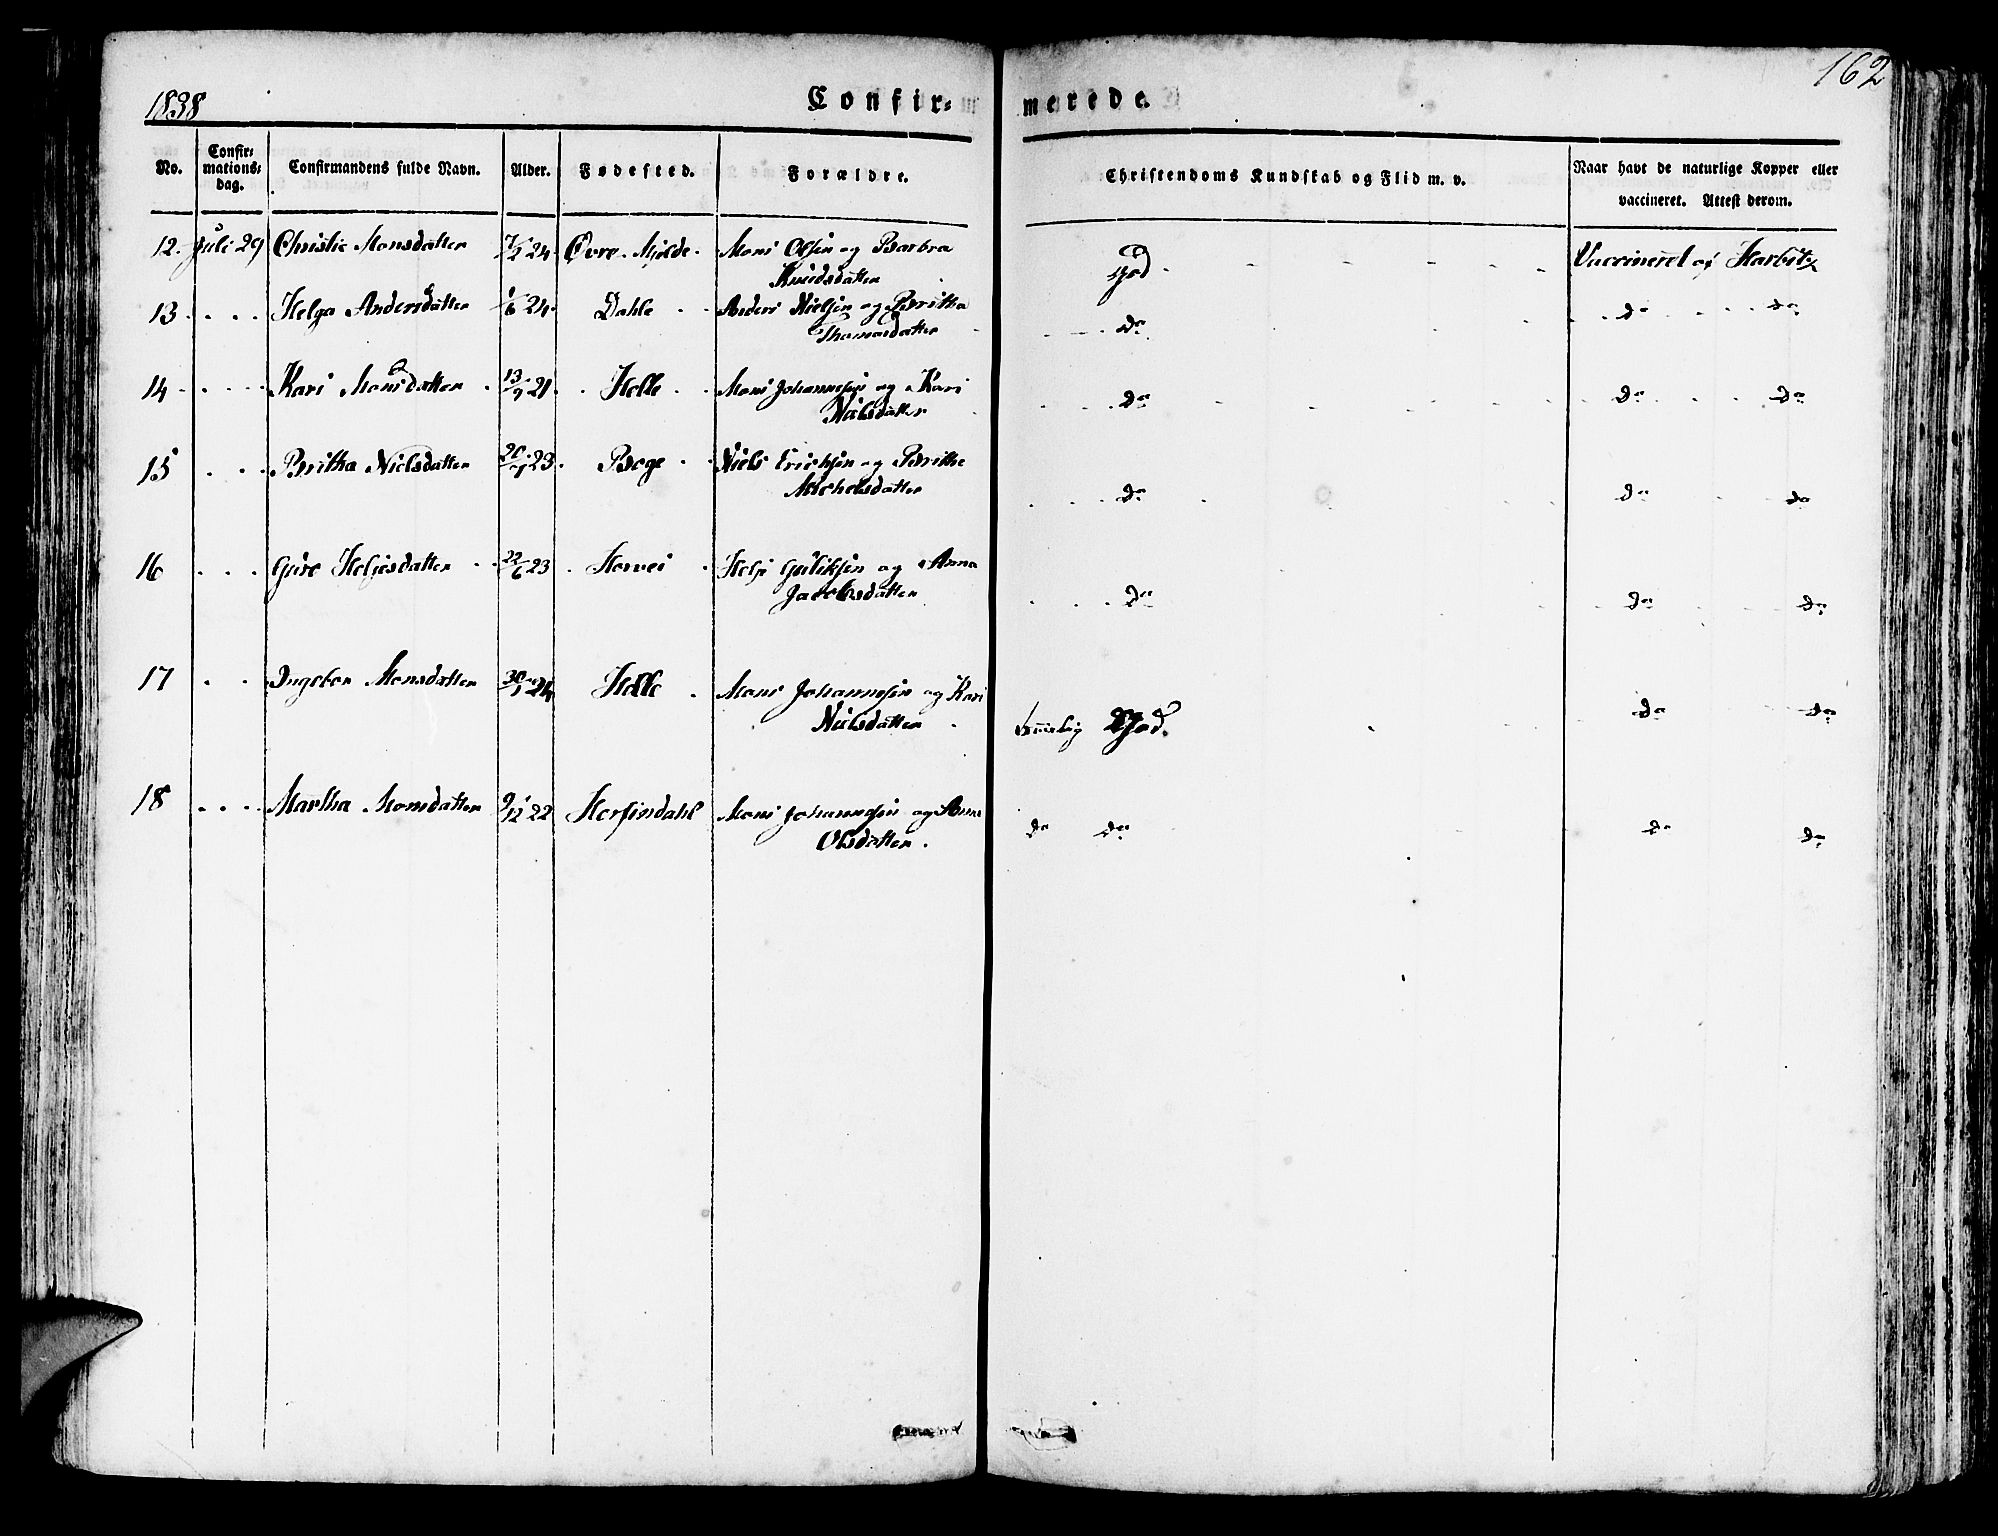 162
1838
Confir-
merede.
No.
Confir-
mations-
dag.
Confirmandens fulde Navn.
Alder.
Fødested.
Forældre.
Christendoms Kundskab og Flid m. v.
Naar havt de naturlige Kopper eller
vaccineret. Attest derom.
12. Juli 29 Christie Monsdatter 24 Øvre Mjelde Mons Olsen og Barbra
Knudsdatter
God Vaccineret af
13 Helga Andersdatter 1/6 24 Dahle Anders Nielsen og Britha
Thomasdatter
do do do
14 Kari Monsdatter 13/9 21 Helle Mons Johannesen og Kari
Nielsdatter
do do do
15 Britha Nielsdatter 20/1 23 Boge Niels Ericksen og Britha
Michelsdatter
do do do
16 Guro Heljesdatter 22/6 23 Hervei Helje Guliksen og Anna
Jacobsdatter
do do do
17 Ingebor Monsdatter 30/1 24 Helle Mons Johannesen og Kari
Nielsdatter
temelig God. do do
18 Martha Monsdatter 9/12 22 Herfindahl Mons Johannesen og Anna
Olsdatter.
do do do do